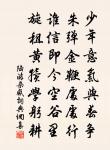 少年意氣與春爭
朱彈金鞭處處行
誰信即今空谷裏
旋租黃犢學躬耕
陸游